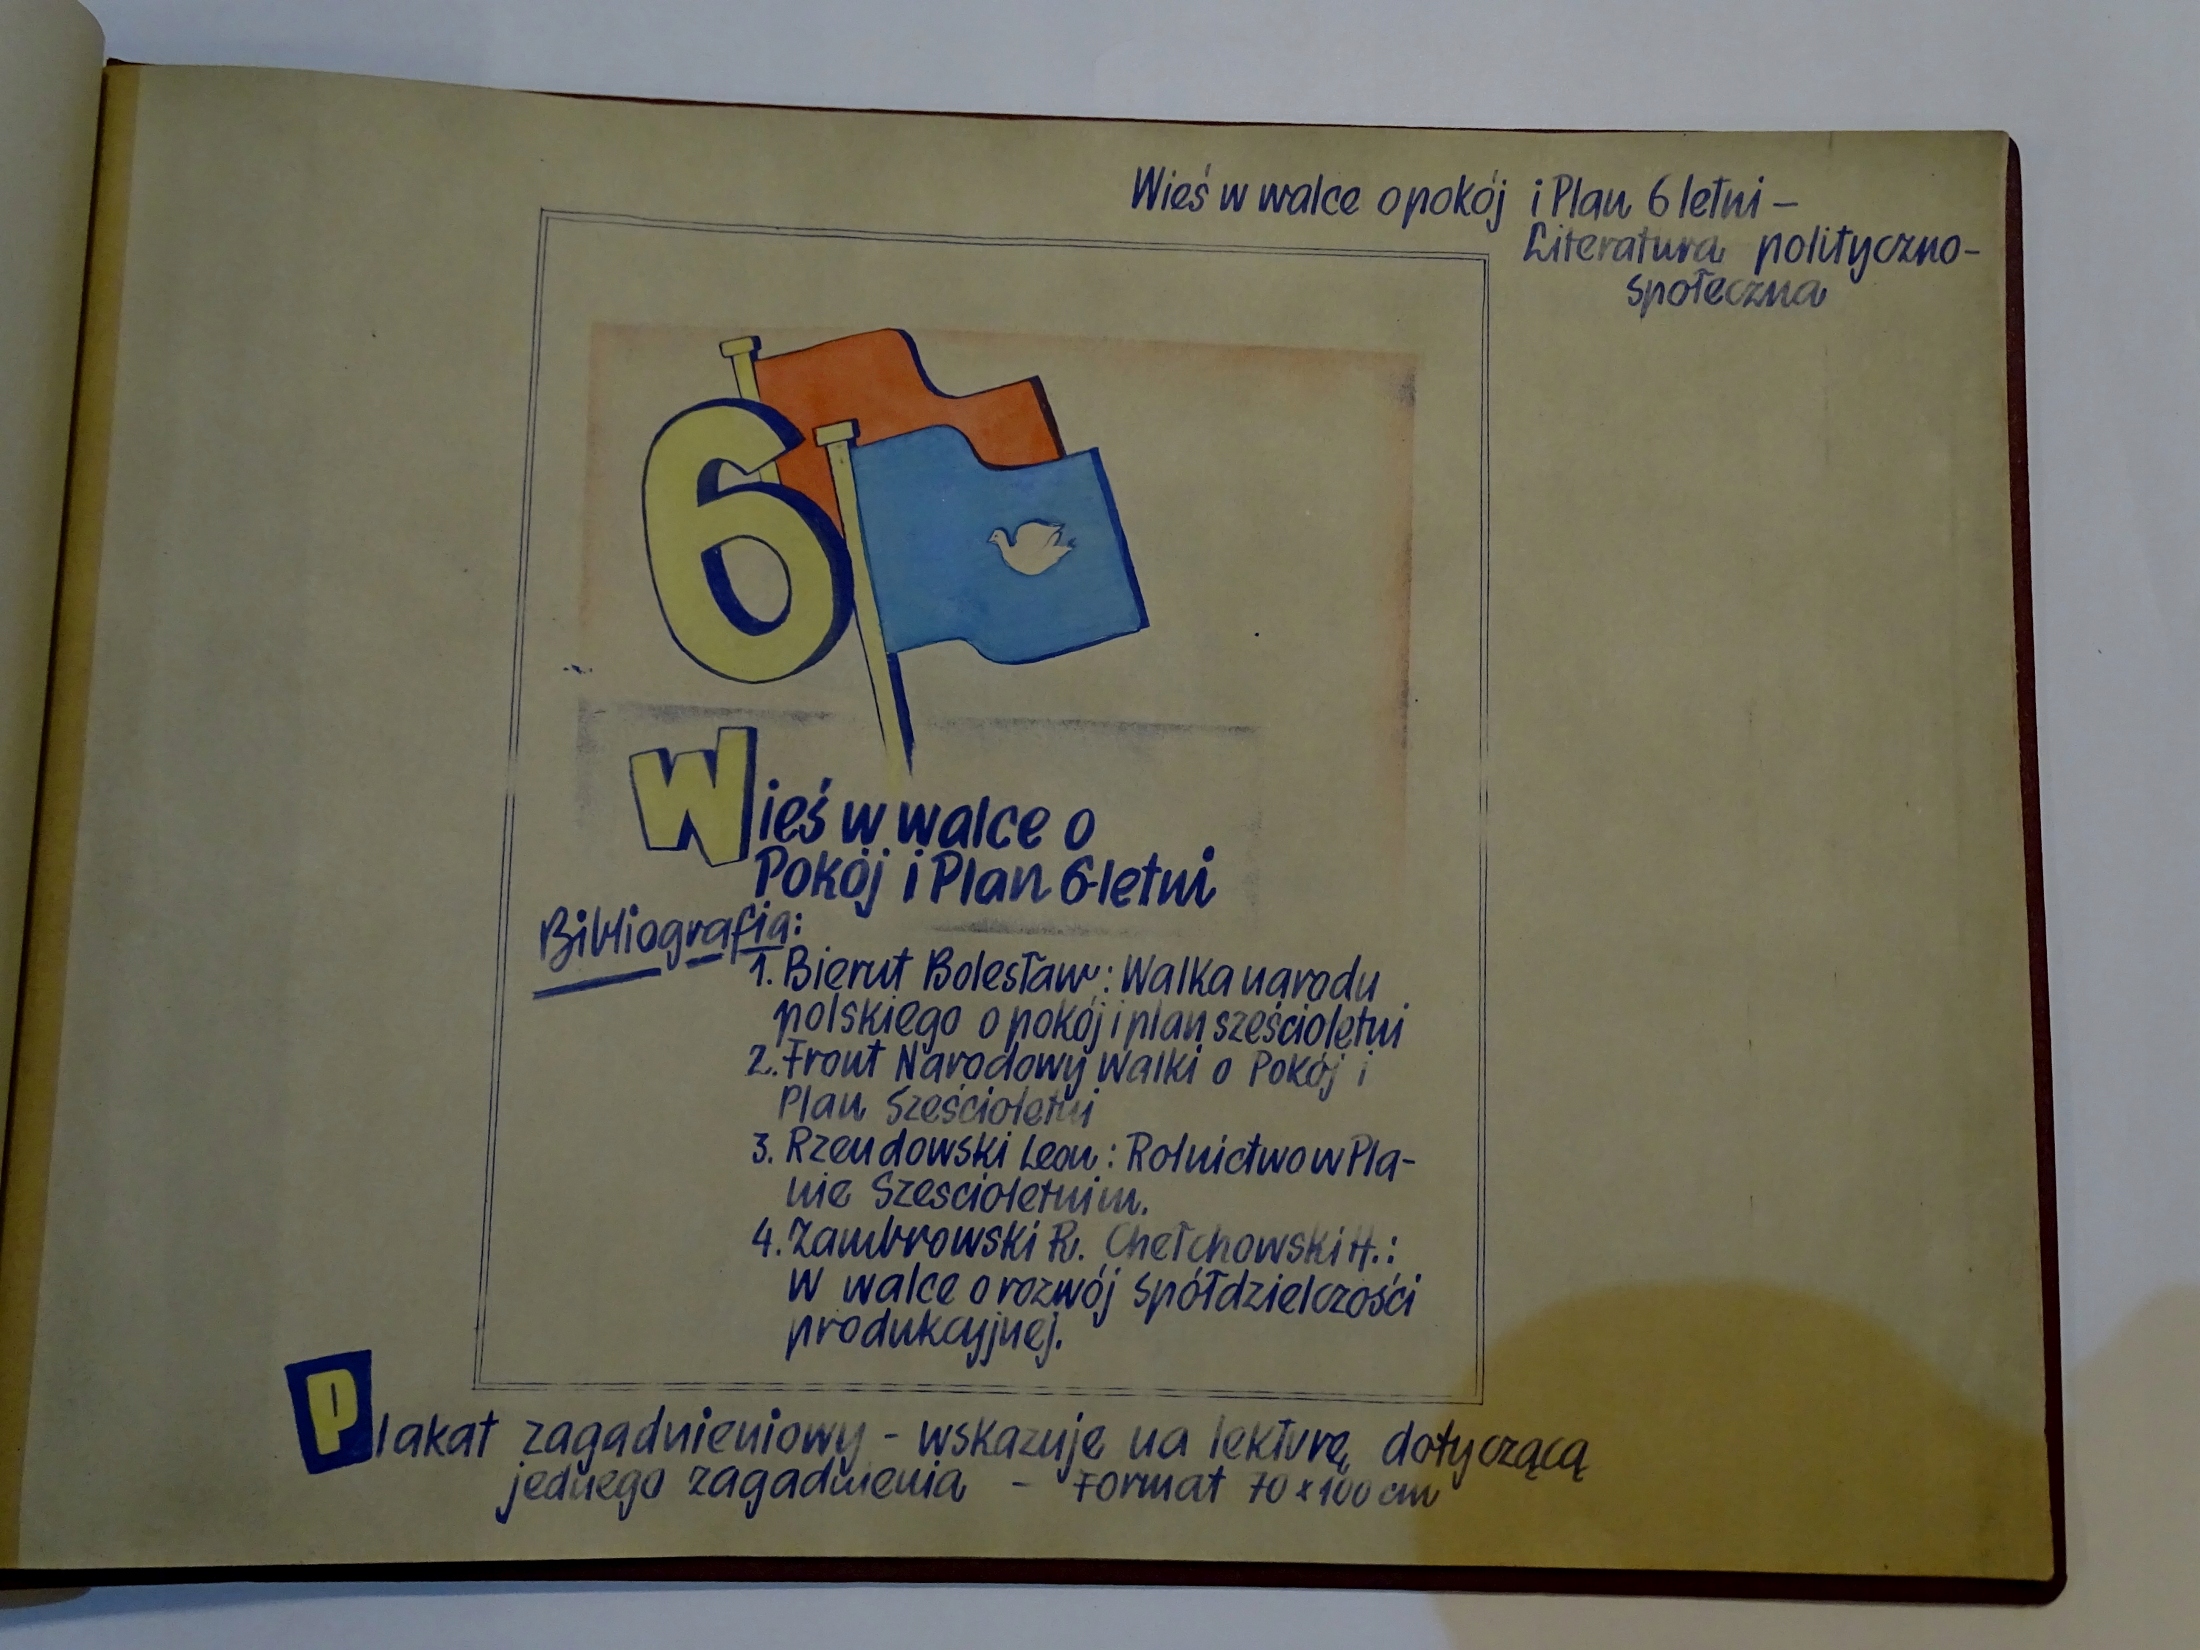 Wieś w walce o pokój i Plan 6 letni –
Literatura polityczno-
społeczna
6
Wieś w walce o
Pokój i Plan 6-letni
Bibliografia:
1. Bierut Bolesław: Walka narodu
polskiego o pokój i plan sześcioletni
2. Front Narodowy Walki o Pokój i
Plan Sześcioletni
3. Rzendowski Leon: Rolnictwo w Pla-
nie Szescioletnim.
4. Zambrowski R. Chełchowski H.:
W walce o rozwój spółdzielczości
produkcyjnej.
Plakat zagadnieniowy - wskazuje na lekturę dotyczącą
jednego zagadnienia - Format 70 x 100 cm